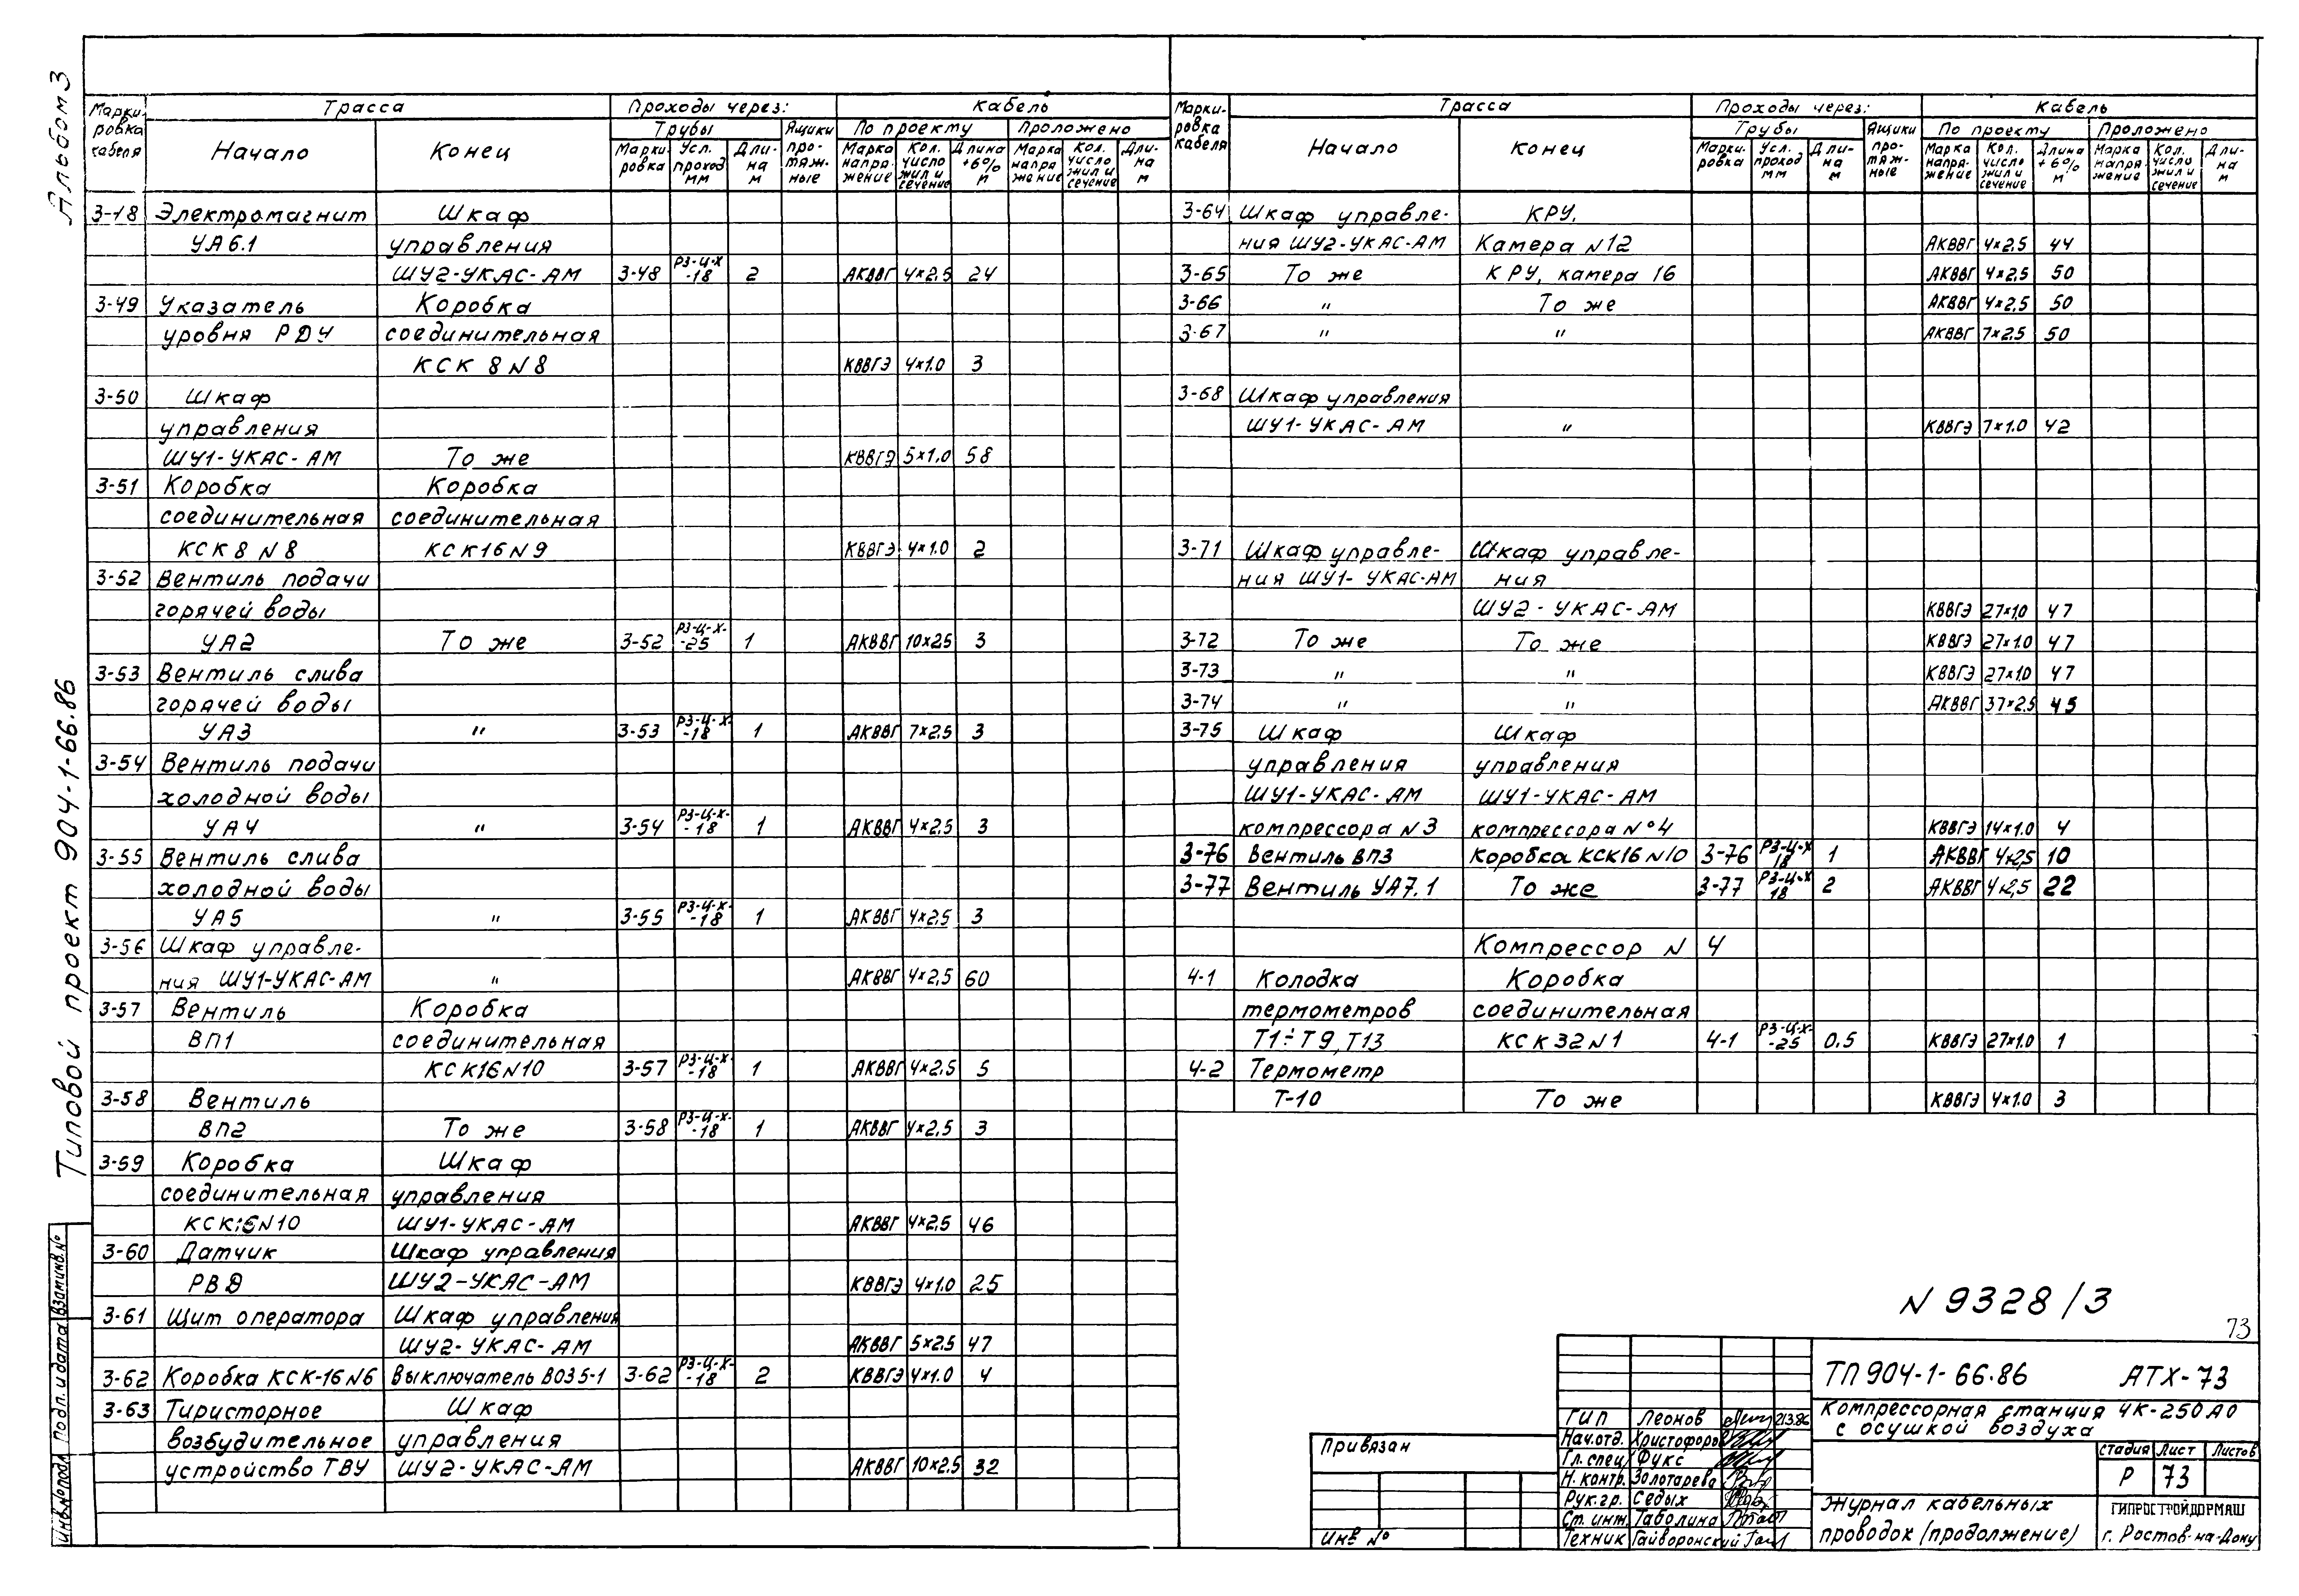 Альбом 3
Типовой проект 904-1-66.86
Инв.№подл. Подп. и дата Взам.инв.№
Марки-ровка кабеля | Трасса | Проходы через: | Кабель
Начало | Конец | Трубы | Ящики про-тяж-ные | По проекту | Проложено
Марки-ровка | Усл. проход мм | Дли-на м | Марка напря-жение | Кол. число жил и сечение | Длина +6% м | Марка напря-жение | Кол. число жил и сечение | Дли-на м
3-18 Электромагнит Шкаф
УА6.1 управления
ШУ2-УКАС-АМ 3-48 РЗ-Ц-Х-18 2 АКВВГ 4×2,5 24
3-49 Указатель Коробка
уровня РДУ соединительная
КСК 8 N8 КВВГЭ 4×1.0 3
3-50 Шкаф
управления
ШУ1-УКАС-АМ То же КВВГЭ 5×1.0 58
3-51 Коробка Коробка
соединительная соединительная
КСК 8 N8 КСК16N9 КВВГЭ 4×1.0 2
3-52 Вентиль подачи
горячей воды
УА2 То же 3-52 РЗ-Ц-Х-25 1 АКВВГ 10×2,5 3
3-53 Вентиль слива
горячей воды
УА3 " 3-53 РЗ-Ц-Х-18 1 АКВВГ 7×2,5 3
3-54 Вентиль подачи
холодной воды
УА4 " 3-54 РЗ-Ц-Х-18 1 АКВВГ 4×2,5 3
3-55 Вентиль слива
холодной воды
УА5 " 3-55 РЗ-Ц-Х-18 1 АКВВГ 4×2,5 3
3-56 Шкаф управле-
ния ШУ1-УКАС-АМ " АКВВГ 4×2,5 60
3-57 Вентиль Коробка
ВП1 соединительная
КСК16N10 3-57 РЗ-Ц-Х-18 1 АКВВГ 4×2,5 5
3-58 Вентиль
ВП2 То же 3-58 РЗ-Ц-Х-18 1 АКВВГ 4×2,5 3
3-59 Коробка Шкаф
соединительная управления
КСК16N10 ШУ1-УКАС-АМ АКВВГ 4×2,5 46
3-60 Датчик Шкаф управления
РВД ШУ2-УКАС-АМ КВВГЭ 4×1.0 25
3-61 Щит оператора Шкаф управления
ШУ2-УКАС-АМ АКВВГ 5×2.5 47
3-62 Коробка КСК-16N6 Выключатель ВОЗ5-1 3-62 РЗ-Ц-Х-18 2 КВВГЭ 4×1.0 4
3-63 Тиристорное Шкаф
возбудительное управления
устройство ТВУ ШУ2-УКАС-АМ АКВВГ 10×2,5 32
Марки-ровка кабеля | Трасса | Проходы через: | Кабель
Начало | Конец | Трубы | Ящики про-тяж-ные | По проекту | Проложено
Марки-ровка | Усл. проход мм | Дли-на м | Марка напря-жение | Кол. число жил и сечение | Длина +6% м | Марка напря-жение | Кол. число жил и сечение | Дли-на м
3-64 Шкаф управле- КРУ.
ния ШУ2-УКАС-АМ Камера N12 АКВВГ 4×2,5 44
3-65 То же КРУ, камера 16 АКВВГ 4×2,5 50
3-66 " То же АКВВГ 4×2,5 50
3-67 " " АКВВГ 7×2,5 50
3-68 Шкаф управления
ШУ1-УКАС-АМ " КВВГЭ 7×1.0 42
3-71 Шкаф управле- Шкаф управле-
ния ШУ1-УКАС-АМ ния
ШУ2-УКАС-АМ КВВГЭ 27×1.0 47
3-72 То же То же КВВГЭ 27×1.0 47
3-73 " " КВВГЭ 27×1.0 47
3-74 " " АКВВГ 37×2,5 45
3-75 Шкаф Шкаф
управления управления
ШУ1-УКАС-АМ ШУ1-УКАС-АМ
компрессора N3 компрессора №4 КВВГЭ 14×1.0 4
3-76 Вентиль ВП3 Коробка КСК16 N10 3-76 РЗ-Ц-Х 18 1 АКВВГ 4×2,5 10
3-77 Вентиль УА7.1 То же 3-77 РЗ-Ц-Х 18 2 АКВВГ 4×2,5 22
Компрессор N 4
4-1 Колодка Коробка
термометров соединительная
Т1÷Т9, Т13 КСК32N1 4-1 РЗ-Ц-Х-25 0.5 КВВГЭ 27×1.0 1
4-2 Термометр
Т-10 То же КВВГЭ 4×1.0 3
N 9328/3
73
ТП 904-1-66.86 АТХ-73
Компрессорная станция 4К-250А0
с осушкой воздуха
Стадия Лист Листов
Р 73
Журнал кабельных
проводок (продолжение)
ГИПРОСТРОЙДОРМАШ
г. Ростов-на-Дону
ГИП Леонов 21.3.86
Нач.отд. Христофоров
Гл.спец Фукс
Н.контр. Золотарева
Рук.гр. Седых
Ст.инж. Таболина
Техник Гайворонский
Привязан
Инв №